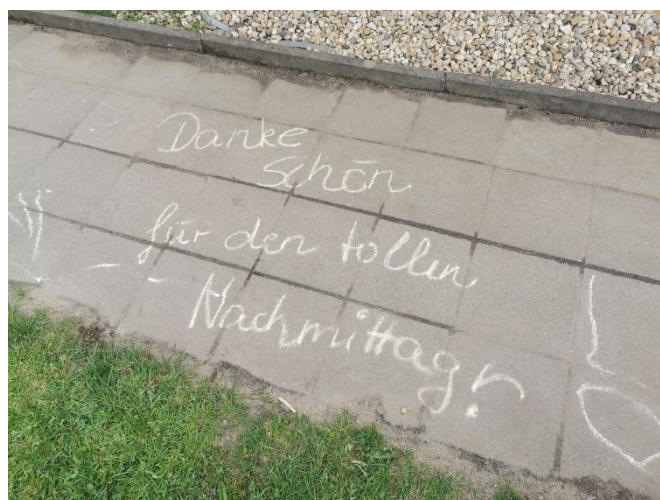 Danke
schön
für den tollen
Nachmittag!